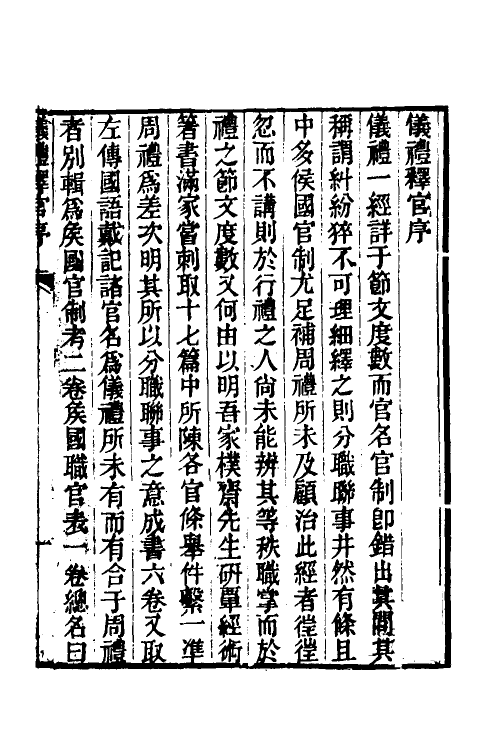 儀禮釋官序
儀禮一經詳于節文度數而官名官制卽錯出其閒其
稱謂糾紛猝不可理細繹之則分職聯事井然有條且
中多侯國官制尤足補周禮所未及顧治此經者徃徃
忽而不講則於行禮之人尙未能辨其等秩職掌而於
禮之節文度數又何由以明吾家樸齋先生研覃經術
箸書滿家嘗刺取十七篇中所陳各官條舉件繫一準
周禮爲差次明其所以分職聯事之意成書六卷又取
左傳國語戴記諸官名爲儀禮所未有而有合于周禮
者別輯爲矦國官制考二卷矦國職官表一卷總名曰
儀禮釋官序
一